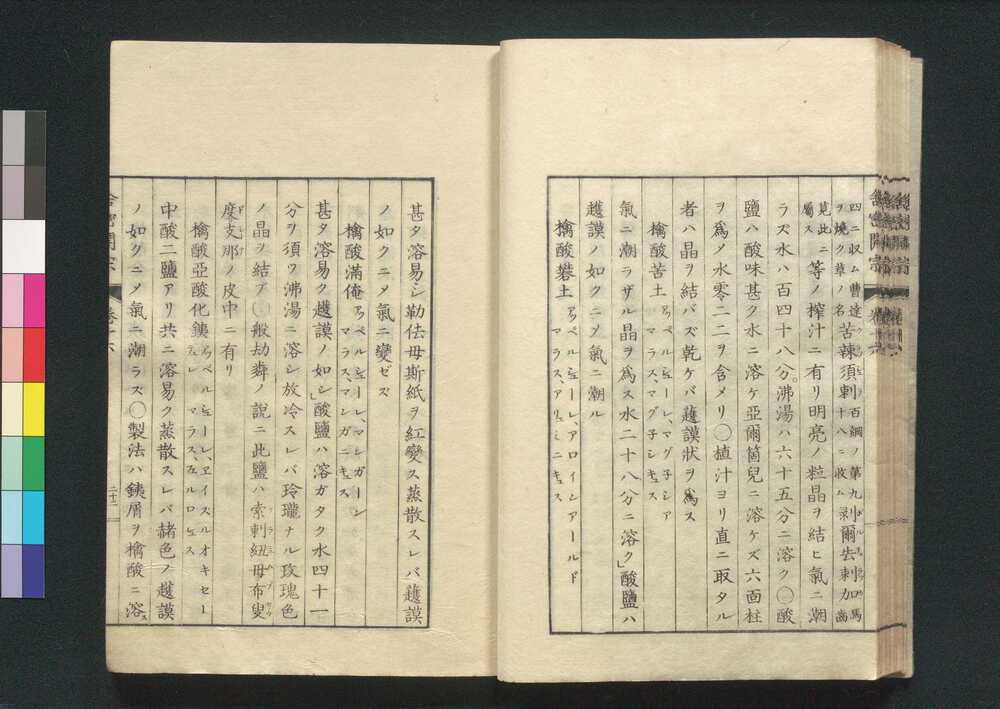 四ニ収ム曹達 百綱ノ第九剥爾去刺加萵
ヲ焼ク草ノ名苦辣須刺十八ニ收ム
見此ニ等ノ搾汁ニ有リ明亮ノ粒晶ヲ結ヒ氣ニ潮
屬ス
ラズ水ハ百四十八分沸湯ハ六十五分ニ溶ク〇酸
鹽ハ酸味甚ク水ニ溶ケ亞爾箇兒ニ溶ケズ六面柱
ヲ爲ノ水零二二ヲ含メリ〇植汁ヨリ直ニ取タル
者ハ晶ヲ結バズ乾ケバ護謨狀ヲ爲ス
檎酸苦土 アッペルシューレ、マグ子シア
マラス、マグ子シキュス
氣ニ潮ラザル晶ヲ爲ス水二十八分ニ溶ク」酸鹽ハ
護謨ノ如クニメ氣ニ潮ル
檎酸礬土 アッペルシューレ、アロインアールド
マラス、アリュミニキュス
甚タ溶易シ勒佉母斯紙ヲ紅變ス蒸散スレバ護謨
ノ如クニメ氣ニ變ゼズ
檎酸滿俺 アッペルシューレ、マンガーン
マラス、マンガニキュス
甚タ溶易ク護謨ノ如シ」酸鹽ハ溶ガタク水四十一
分ヲ須ヲ沸湯ニ溶シ放冷スレバ玲瓏ナル玫瑰色
ノ晶ヲ結ブ〇般劫彝ノ説ニ此鹽ハ索刺紐母布叟
度支那ノ皮中ニ有リ
檎酸亞酸化鐵 アッペルシューレ、エイスルオキセー
デュレ マラス、フェルロシュス
中酸二鹽アリ共ニ溶易ク蒸散スレバ赭色ノ護謨
ノ如クニメ氣ニ潮ラス〇製法ハ鐵屑ヲ檎酸ニ溶ス
舎密開宗
巻十六
二十二